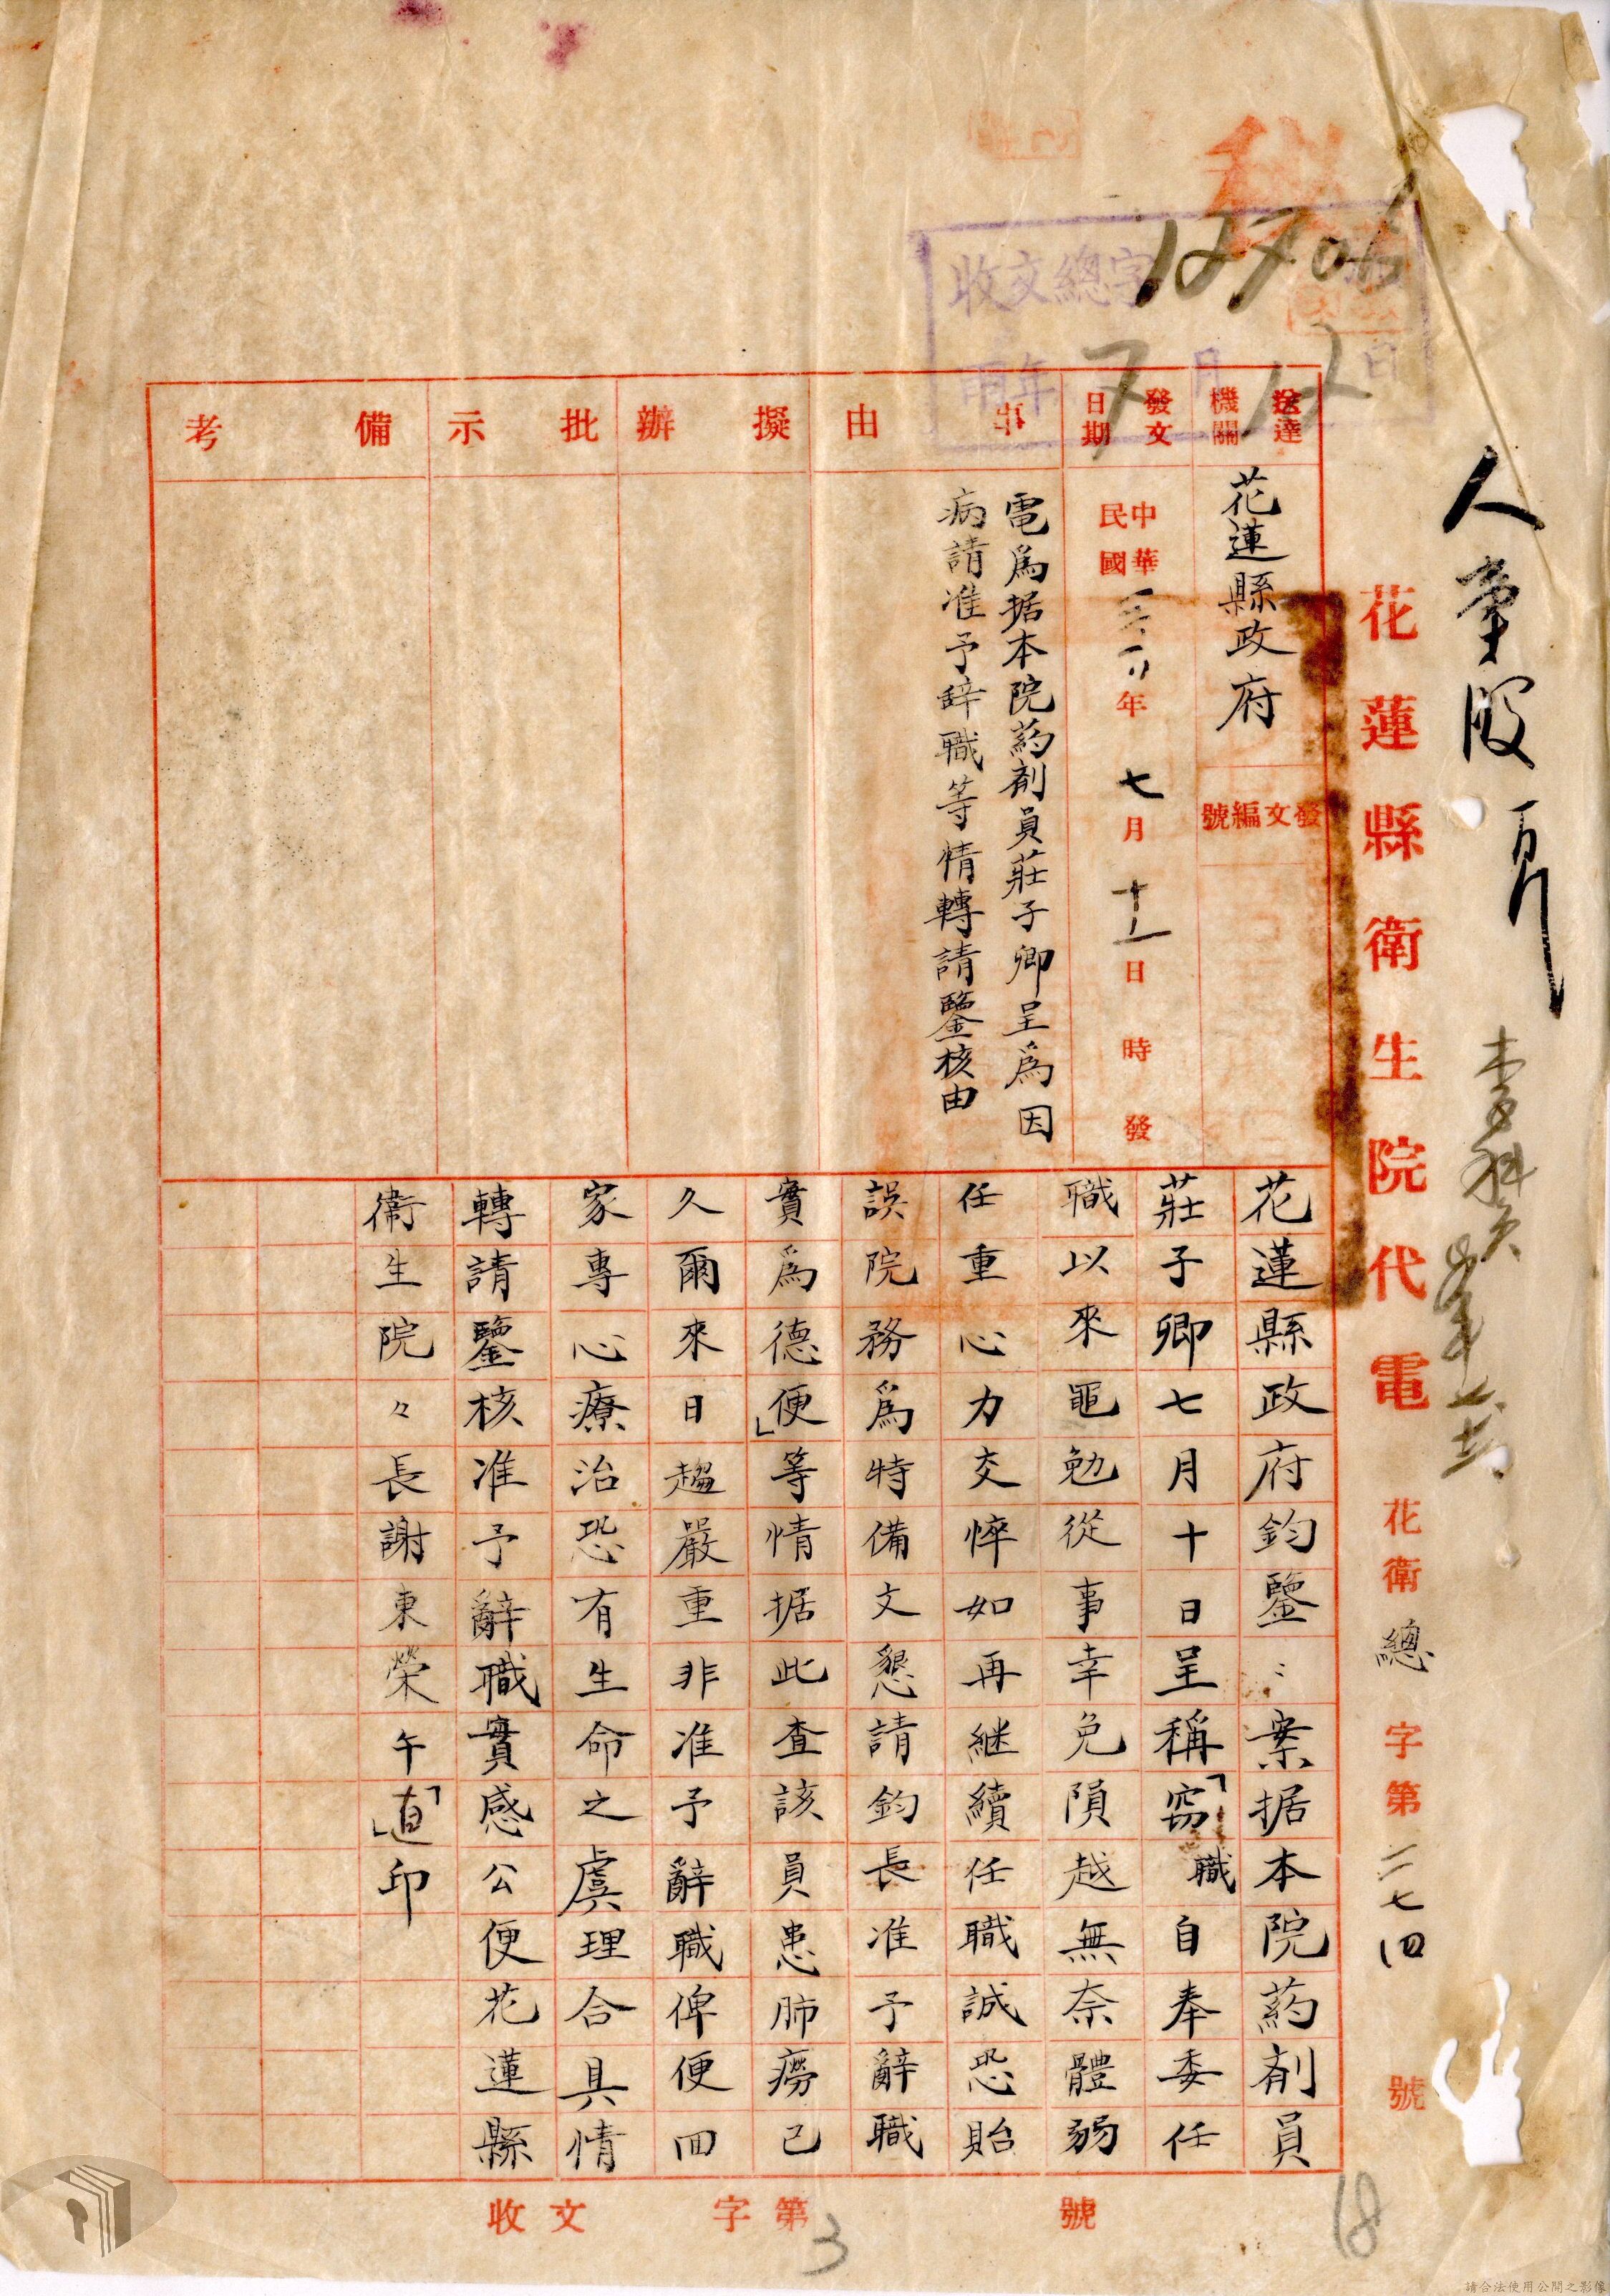 人事股
花蓮縣衛生院代電 花衛總字第二二七四號
收文總字 12706
年 7 月 12 日
送達機關 花蓮縣政府
發文編號
發文日期 中華民國 年 七 月 十一 日 時 發
事由
電爲据本院葯剤員莊子卿呈爲因
病請准予辞職等情轉請鑒核由
擬辦
批示
備考
花蓮縣政府鈞鑒：案据本院葯剤員
莊子卿七月十日呈稱「窃職自奉委任
職以來黽勉從事幸免隕越無奈體弱
任重心力交悴如再継續任職誠恐貽
誤院務爲特備文懇請鈞長准予辭職
實爲德便」等情据此查該員患肺癆已
久爾來日趨嚴重非准予辭職俾便回
家專心療治恐有生命之虞理合具情
轉請鑒核准予辭職實感公便花蓮縣
衛生院々長謝東榮午「真」印
收文 字第 號
3
18
請合法使用公開之影像